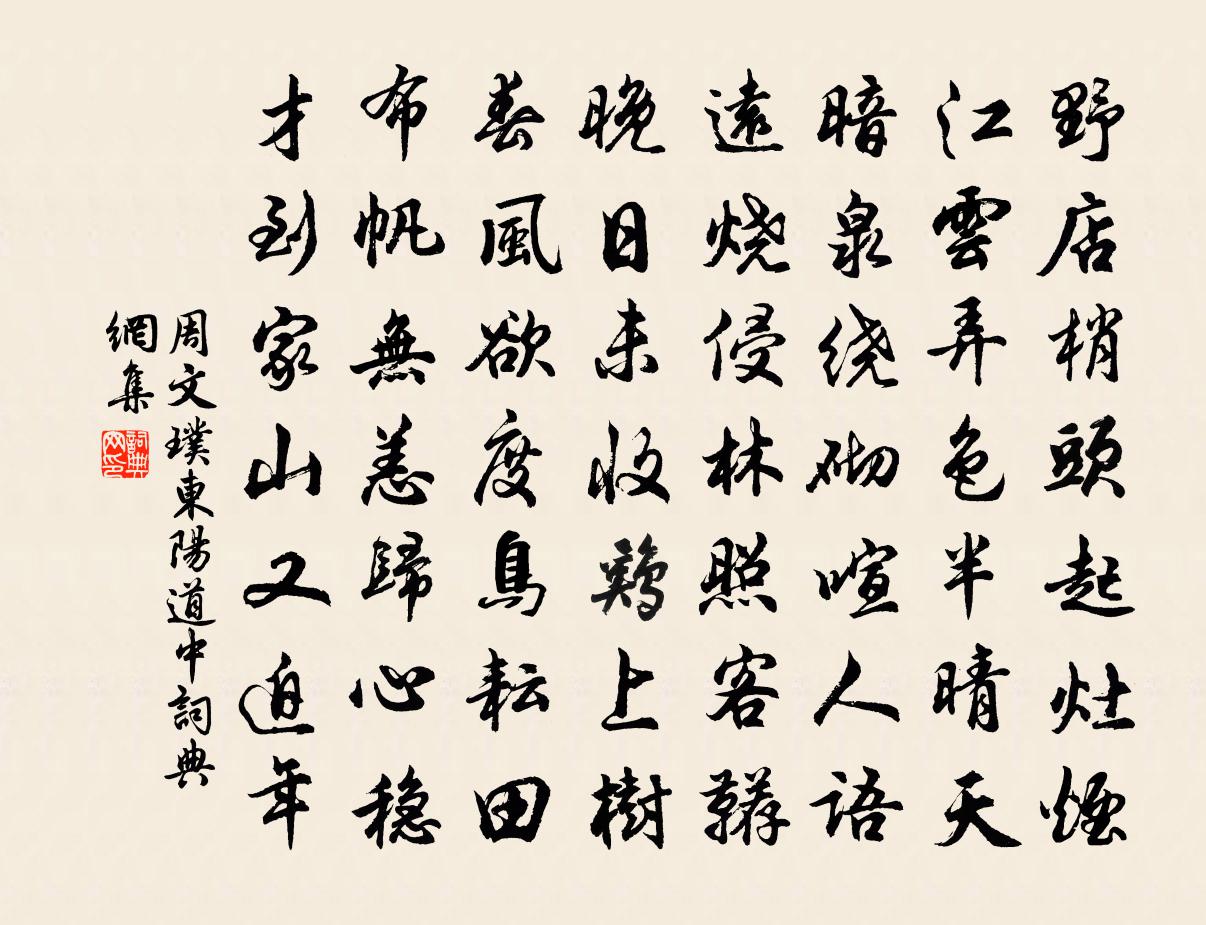 野店梢頭起灶煙
江雲弄色半晴天
暗泉绕砌喧人語
遠烧侵林照客韉
晚日未收鷄上樹
春風欲度鳥耘田
布帆無恙歸心穏
才到家山又迫年
周文璞東陽道中詞典
網集
詞典
网印